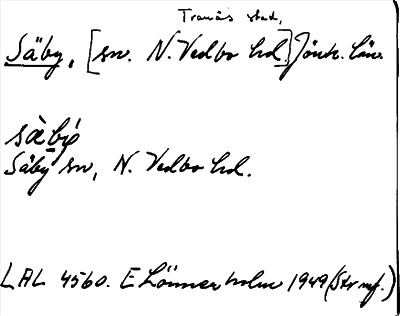 Tranås stad,
Säby, [sn. N. Vedbo hd.] Jönk. län.
sàbý
Säby sn, N. Vedbo hd.
LAL 4560. E Lönnerholm 1949 (Str mf.)